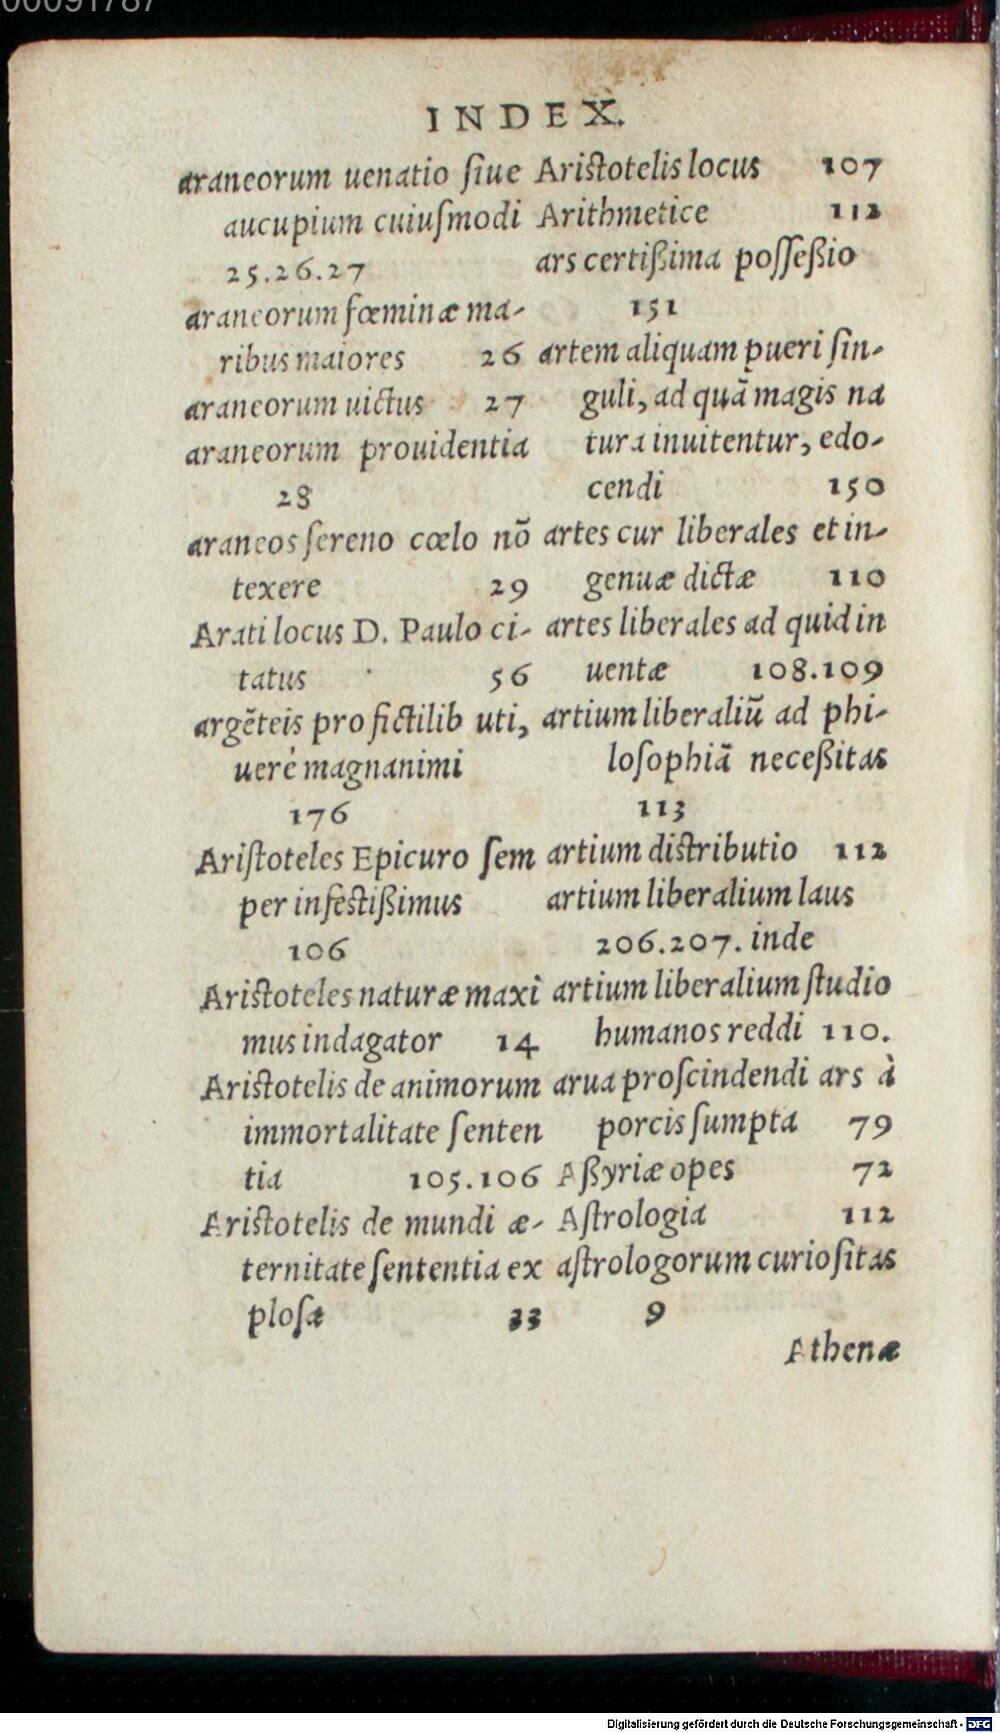 00091787
INDEX.
araneorum uenatio ſiue
aucupium cuiuſmodi
25.26.27
araneorum fœminæ ma-
ribus maiores 26
araneorum uictus 27
araneorum prouidentia
28
araneos ſereno cœlo nõ
texere 29
Arati locus D. Paulo ci-
tatus 56
argẽteis pro fictilib uti,
uerè magnanimi
176
Ariſtoteles Epicuro ſem
per infeſtißimus
106
Ariſtoteles naturæ maxi
mus indagator 14
Ariſtotelis de animorum
immortalitate ſenten
tia 105.106
Ariſtotelis de mundi æ-
ternitate ſententia ex
ploſa 33
Ariſtotelis locus 107
Arithmetice 112
ars certißima poſſeßio
151
artem aliquam pueri ſin-
guli, ad quã magis na
tura inuitentur, edo-
cendi 150
artes cur liberales et in-
genuæ dictæ 110
artes liberales ad quid in
uentæ 108.109
artium liberaliũ ad phi-
loſophiã neceßitas
113
artium diſtributio 112
artium liberalium laus
206.207. inde
artium liberalium ſtudio
humanos reddi 110.
arua proſcindendi ars à
porcis ſumpta 79
Aßyriæ opes 72
Aſtrologia 112
aſtrologorum curioſitas
9
Athenæ
Digitalisierung gefördert durch die Deutsche Forschungsgemeinschaft - DFG